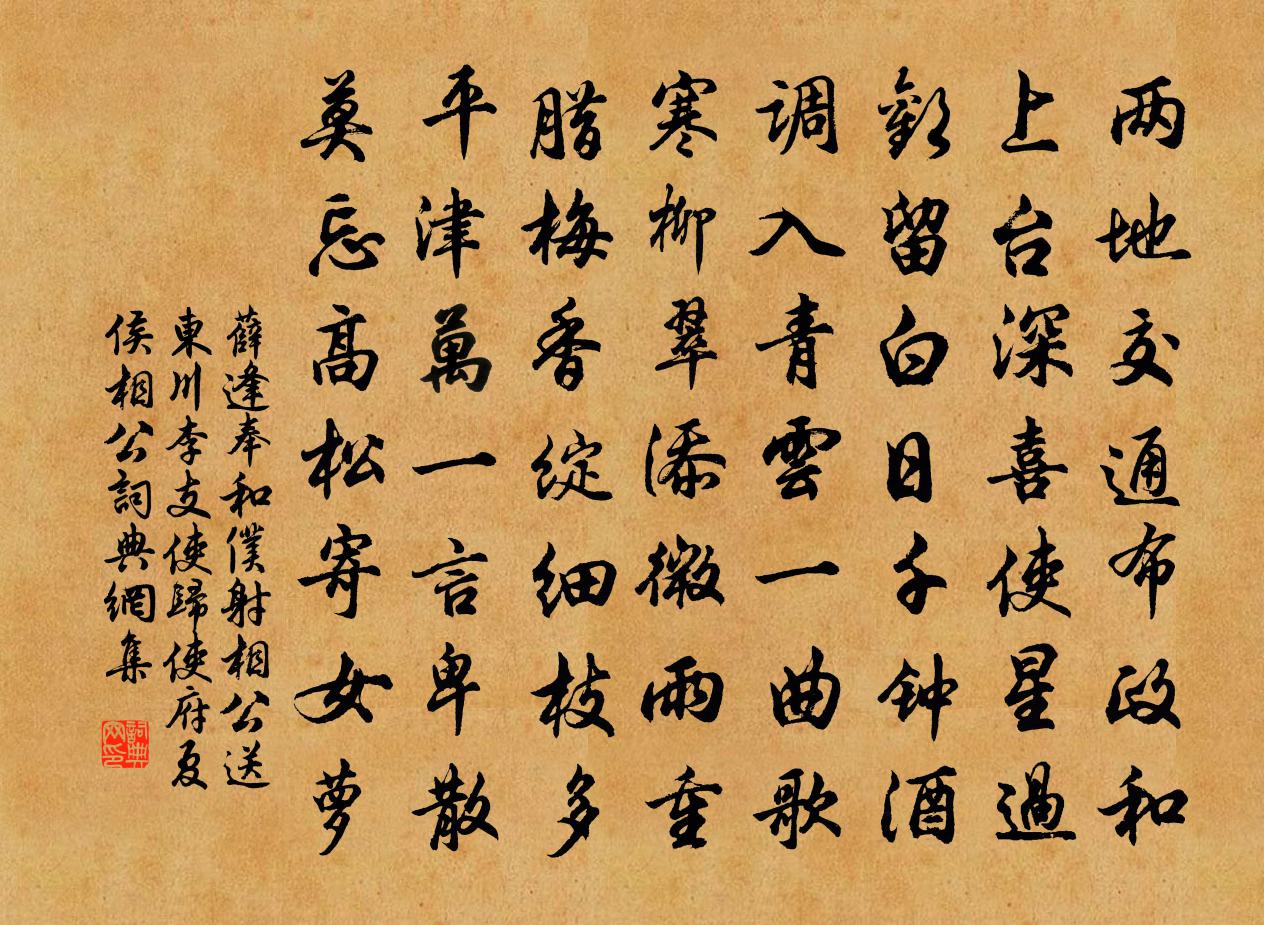 两地交通布政和
上台深喜使星過
歡留白日千钟酒
调入青雲一曲歌
寒柳翠添微雨重
腊梅香綻细枝多
平津萬一言卑散
莫忘高松寄女萝
薛逢奉和僕射相公送
東川李支使歸使府夏
侯相公詞典網集
詞典网印